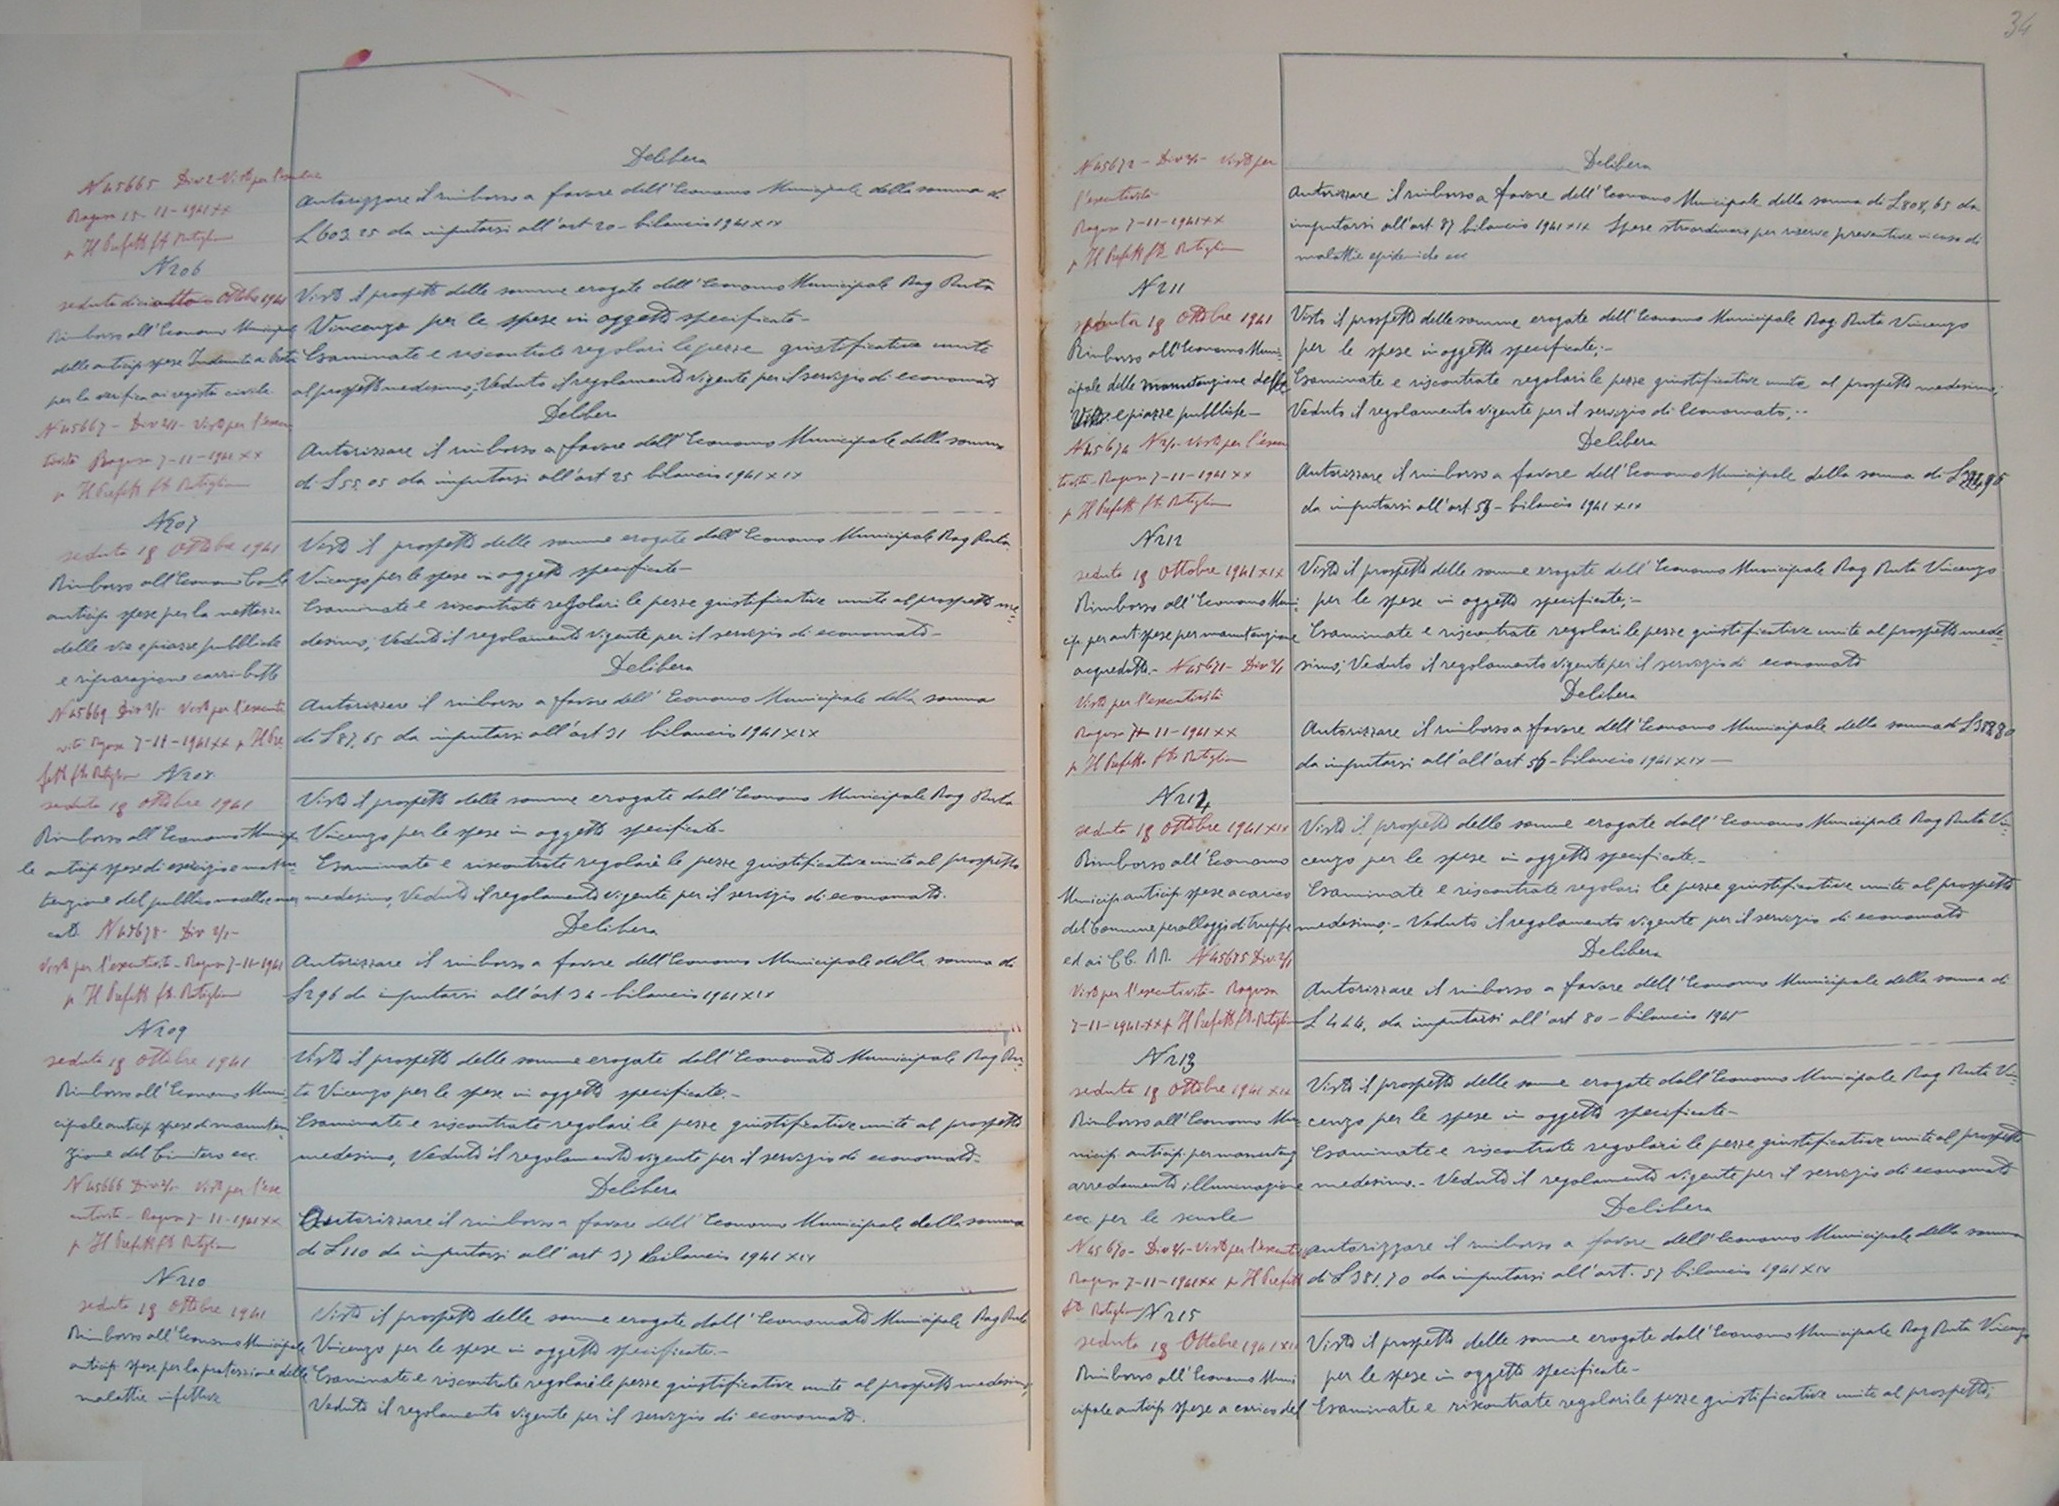 Delibera
N 45665 Div 2 - Visto per l'esecu
Autorizzare il rimborso a favore dell'Economo Municipale della somma di
Ragusa 15-11-1941 XX
L 603.25 da imputarsi all'art 20 - bilancio 1941 XIX
p Il Prefetto fto
N 206
seduta ottobre 1941
Visto il prospetto delle somme erogate dall'Economo Municipale Rag Ruta
Rimborso all'Economo Municipale
Vincenzo per le spese in oggetto specificate -
delle anticip. spese Indennità
Esaminate e riscontrate regolari le pezze giustificative unite
per la verifica ai registri civile
al prospetto medesimo; Veduto il regolamento vigente per il servizio di economato
Delibera
N 45667 - Div 2/1 - Visto per l'esecu
tività Ragusa 7-11-1941 XX
Autorizzare il rimborso a favore dell'Economo Municipale della somma
p Il Prefetto fto
di L 55.05 da imputarsi all'art 25 bilancio 1941 XIX
N 207
seduta 18 ottobre 1941
Visto il prospetto delle somme erogate dall'Economo Municipale Rag Ruta
Rimborso all'Economo
Vincenzo per le spese in oggetto specificate -
anticip. spese per la nettezza
Esaminate e riscontrate regolari le pezze giustificative unite al prospetto me=
delle vie e piazze pubbliche
desimo; Veduto il regolamento vigente per il servizio di economato -
e riparazione carri-botte
Delibera
N 45669 Div 2/1 - Visto per l'esecuti
Autorizzare il rimborso a favore dell'Economo Municipale della somma
vità Ragusa 7-11-1941 XX p Il Pre
di L 87,65 da imputarsi all'art 31 bilancio 1941 XIX
fetto fto N 208
seduta 18 ottobre 1941
Visto il prospetto delle somme erogate dall'Economo Municipale Rag Ruta
Rimborso all'Economo Municipa
Vincenzo per le spese in oggetto specificate -
le anticip spese di esercizio e manu
Esaminate e riscontrate regolari le pezze giustificative unite al prospetto
tenzione del pubblico macello e mer
medesimo, Veduto il regolamento vigente per il servizio di economato.
cato N 45678 - Div 2/1 -
Delibera
Visto per l'esecutività - Ragusa 7-11-1941
Autorizzare il rimborso a favore dell'Economo Municipale della somma di
p Il Prefetto fto
L 296 da imputarsi all'art 34 - bilancio 1941 XIX
N 209
seduta 18 ottobre 1941
Visto il prospetto delle somme erogate dall'Economato Municipale Rag Ru=
Rimborso all'Economo Muni=
ta Vincenzo per le spese in oggetto specificate. -
cipale anticip spese di manuten
Esaminate e riscontrate regolari le pezze giustificative unite al prospetto
zione del Cimitero ecc
medesimo, Veduto il regolamento vigente per il servizio di economato -
N 45666 Div 2/1 - Visto per l'ese
Delibera
cutività - Ragusa 7-11-1941 XX
Autorizzare il rimborso a favore dell'Economo Municipale della somma
p Il Prefetto fto
di L 110 da imputarsi all'art 37 bilancio 1941 XIX
N 210
seduta 18 ottobre 1941
Visto il prospetto delle somme erogate dall'Economato Municipale Rag Ruta
Rimborso all'Economo Municipale
Vincenzo per le spese in oggetto specificate. -
anticip. spese per la profilassi delle
Esaminate e riscontrate regolari le pezze giustificative unite al prospetto medesimo;
malattie infettive
Veduto il regolamento vigente per il servizio di economato.
34
N 45672 - Div 2/1 - Visto per
Delibera
l'esecutività
Autorizzare il rimborso a favore dell'Economo Municipale della somma di L 808,65 da
Ragusa 7-11-1941 XX
imputarsi all'art. 87 bilancio 1941 XIX Spese straordinarie per misure preventive in caso di
p Il Prefetto fto
malattie epidemiche ecc
N 211
seduta 18 ottobre 1941
Visto il prospetto delle somme erogate dall'Economo Municipale Rag. Ruta Vincenzo
Rimborso all'Economo Muni=
per le spese in oggetto specificate; -
cipale delle manutenzione delle
Esaminate e riscontrate regolari le pezze giustificative unite al prospetto medesimo;
vie e piazze pubbliche -
Veduto il regolamento vigente per il servizio di Economato; -
Delibera
N 45674 N 2/1 Visto per l'esecu
Autorizzare il rimborso a favore dell'Economo Municipale della somma di L
tività - Ragusa 7-11-1941 XX
da imputarsi all'art. 53 - bilancio 1941 XIX
p Il Prefetto fto
N 212
seduta 18 ottobre 1941 XIX
Visto il prospetto delle somme erogate dall'Economo Municipale Rag Ruta Vincenzo
Rimborso all'Economo Muni=
per le spese in oggetto specificate; -
cip. per ant spese per manutenzione
Esaminate e riscontrate regolari le pezze giustificative unite al prospetto mede=
acquedotto. - N 45671 - Div 2/1
simo; Veduto il regolamento vigente per il servizio di economato
Delibera
Visto per l'esecutività
Ragusa 7-11-1941 XX
Autorizzare il rimborso a favore dell'Economo Municipale della somma di L 358,80
p Il Prefetto fto
da imputarsi all'all'art 56 - bilancio 1941 XIX -
N 214
seduta 18 ottobre 1941 XIX
Visto il prospetto delle somme erogate dall'Economo Municipale Rag Ruta Vin=
Rimborso all'Economo
cenzo per le spese in oggetto specificate. -
Municip anticip. spese a carico
Esaminate e riscontrate regolari le pezze giustificative unite al prospetto
del Comune per alloggi di truppe
medesimo; - Veduto il regolamento vigente per il servizio di economato
ed ai CC. RR. N 45675 Div 2/1
Delibera
Visto per l'esecutività - Ragusa
Autorizzare il rimborso a favore dell'Economo Municipale della somma di
7-11-1941 XX p Il Prefetto fto
L 444, da imputarsi all'art 80 - bilancio 1941
N 213
seduta 18 ottobre 1941 XIX
Visto il prospetto delle somme erogate dall'Economo Municipale Rag Ruta Vin=
Rimborso all'Economo Mu
cenzo per le spese in oggetto specificate -
nicip. anticip. per manuteng
Esaminate e riscontrate regolari le pezze giustificative unite al prospetto
arredamento illuminazione
medesimo. - Veduto il regolamento vigente per il servizio di economato
ecc per le scuole
Delibera
N 45670 - Div 2/1 - Visto per l'esecuti
Autorizzare il rimborso a favore dell'Economo Municipale della somma
Ragusa 7-11-1941 XX p Il Prefetto
di L 381,70 da imputarsi all'art. 57 bilancio 1941 XIX
fto N 215
seduta 18 Ottobre 1941 XIX
Visto il prospetto delle somme erogate dall'Economo Municipale Rag Ruta Vincenzo
Rimborso all'Economo Muni
per le spese in oggetto specificate -
cipale anticip spese a carico del
Esaminate e riscontrate regolari le pezze giustificative unite al prospetto;